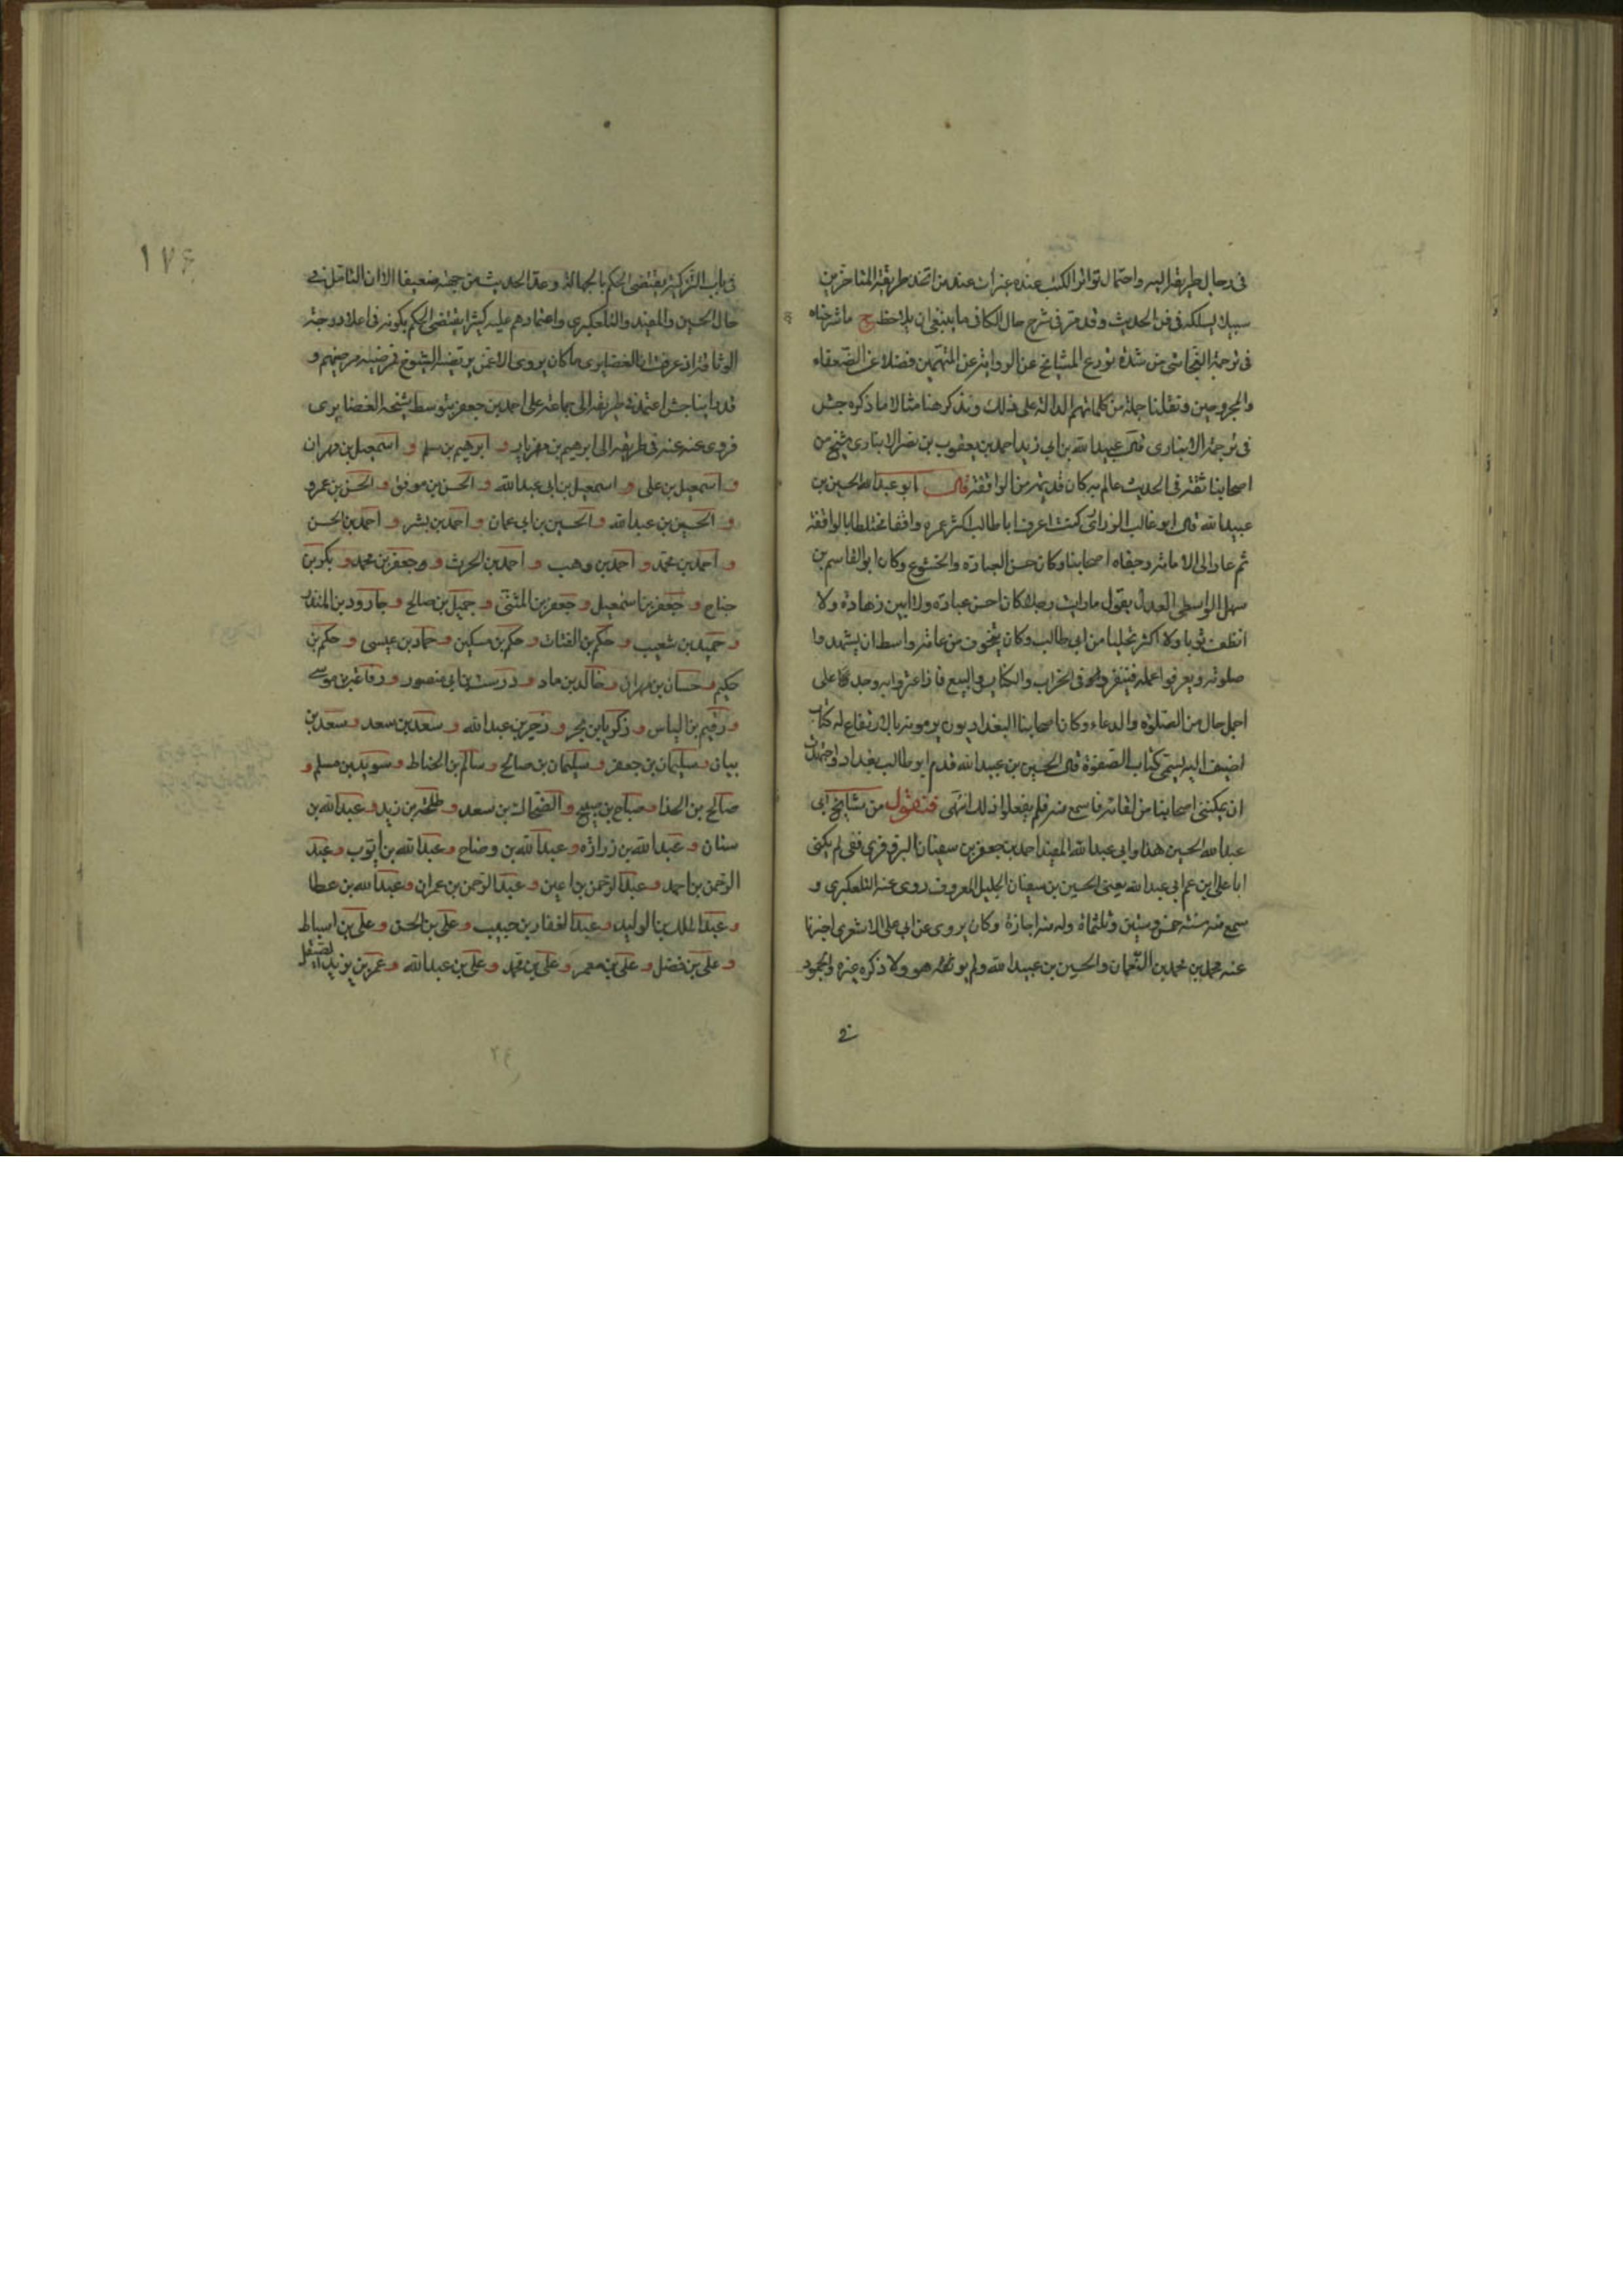 في رجال طريقه اليه واحتمال تواتر الكتب عنده غير ات عند من اتخذ طريقة المتأخرين
سبيلا يسلكه في فن الحديث وقد مر في شرح حال الكافي ما ينبغي ان يلاحظ ح ما شرحناه
في ترجمة النجاشي من شدة تورع المشايخ عن الرواية عن المتهمين فضلا عن الضعفاء
والمجروحين ونقلنا جملة من كلماتهم الدالة على ذلك ونذكر هنا مثالا ما ذكره جش
في ترجمة الانباري قال عبيد الله بن ابي زيد احمد بن يعقوب بن نصر الانباري شيخ من
اصحابنا ثقة في الحديث عالم به كان قديما من الواقفة قال ابو عبد الله الحسين بن
عبيد الله قال ابو غالب الزراري كنت اعرف ابا طالب اكثر عمره واقفا مختلطا بالواقفة
ثم عاد الى الامامة وجفاه اصحابنا وكان حسن العبادة والخشوع وكان ابو القاسم بن
سهل الواسطي العدل يقول ما رايت رجلا كان احسن عبادة ولا ابين زهادة ولا
انظف ثوبا ولا اكثر تحليا من ابي طالب وكان يتخوف من عامة واسط ان يشهدوا
صلوته ويعرفوا عمله فينفرد في الخراب والكنايس والبيع فاذا عثروا به وجد على
اجمل حال من الصلوة والدعاء وكان اصحابنا البغداديون يرمونه بالارتفاع له كتاب
اضيف اليه يسمى كتاب الصفوة قال الحسين بن عبيد الله قدم ابو طالب بغداد واجتهدت
ان يمكنني اصحابنا من لقائه فاسمع منه فلم يفعلوا ذلك انتهى فنقول من مشايخ ابي
عبد الله الحسين هذا وابي عبد الله المفيد احمد بن جعفر بن سفيان البزوفري ففي لم يكنى
ابا علي ابن عم ابي عبد الله يعني الحسين بن سفيان الجليل المعروف روى عنه التلعكبري و
سمع منه سنة خمس وستين وثلثمائة وله منه اجازة وكان يروي عن ابي علي الاشعري اخبرنا
عنه محمد بن محمد بن النعمان والحسين بن عبيد الله ولم يوثقه هو ولا ذكره غيره والجمود
في
١٧٤
في باب التزكية يقتضي الحكم بالجهالة وعد الحديث من جهته ضعيفا الا ان التامل في
حال الحسين والمفيد والتلعكبري واعتمادهم عليه كثيرا يقتضي الحكم بكونه في اعلا درجة
الوثاقة اذ عرفت ان الغضايري ما كان يروي الا عمن يرتضيه الشيوخ فرضيه مرضيهم و
قد راينا جش اعتمد في طريقه الى جماعة على احمد بن جعفر بتوسط شيخه الغضايري
فروى عنه عنه في طريقه الى ابرهيم بن مهزيار و ابرهيم بن سلم و اسمعيل بن مهران
و اسمعيل بن علي و اسمعيل بن ابي عبد الله و الحسن بن موفق و الحسن بن عمرو
و الحسين بن عبد الله و الحسين بن ابي عمان و احمد بن بشر و احمد بن الحسن
و احمد بن محمد و احمد بن وهب و احمد بن الحرث و وجعفر بن محمد و بكر بن
جناح و جعفر بن اسمعيل و جعفر بن المثنى و جميل بن صالح و جارود بن المنذر
و حميد بن شعيب و حكم بن القتات و حكم بن مسكين و حماد بن عيسى و حكم بن
حكيم و حسان بن مهران و خالد بن ماد و درست بن ابي منصور و رفاعة بن موسى
و رقيم بن الياس و زكريا بن بحر و زحر بن عبد الله و سعد بن سعد و سعد بن
بيان و سليمان بن جعفر و سليمان بن صالح و سالم بن الحناط و سويد بن مسلم و
صالح بن الحذا و صباح بن صبيح و الضحاك بن سعد و طلحة بن زيد و عبد الله بن
سنان و عبد الله بن زرارة و عبد الله بن وضاح و عبد الله بن ايوب و عبد
الرحمن بن احمد و عبد الرحمن بن اعين و عبد الرحمن بن عمران و عبد الله بن عطا
و عبد الملك بن الوليد و عبد الغفار بن حبيب و علي بن الحسن و علي بن اسباط
و علي بن فضل و علي بن معمر و علي بن محمد و علي بن عبد الله و عمر بن يزيد الصيقل